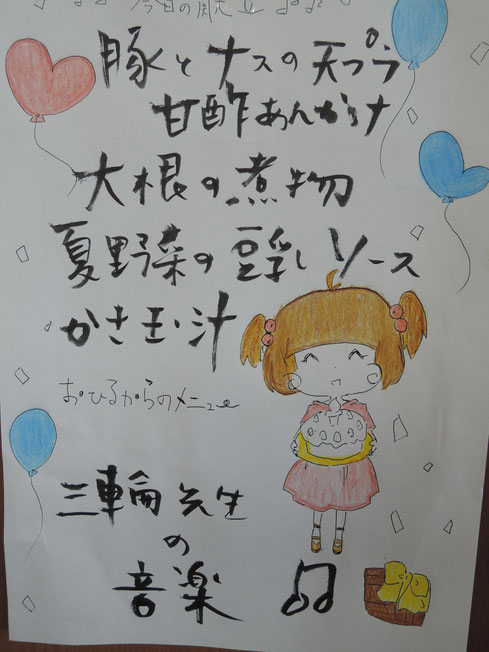 今日の献立
豚とナスの天プラ
甘酢あんかけ
大根の煮物
夏野菜の豆乳ソース
かき玉汁
おひるからのメニュー
三輪先生
の
音楽